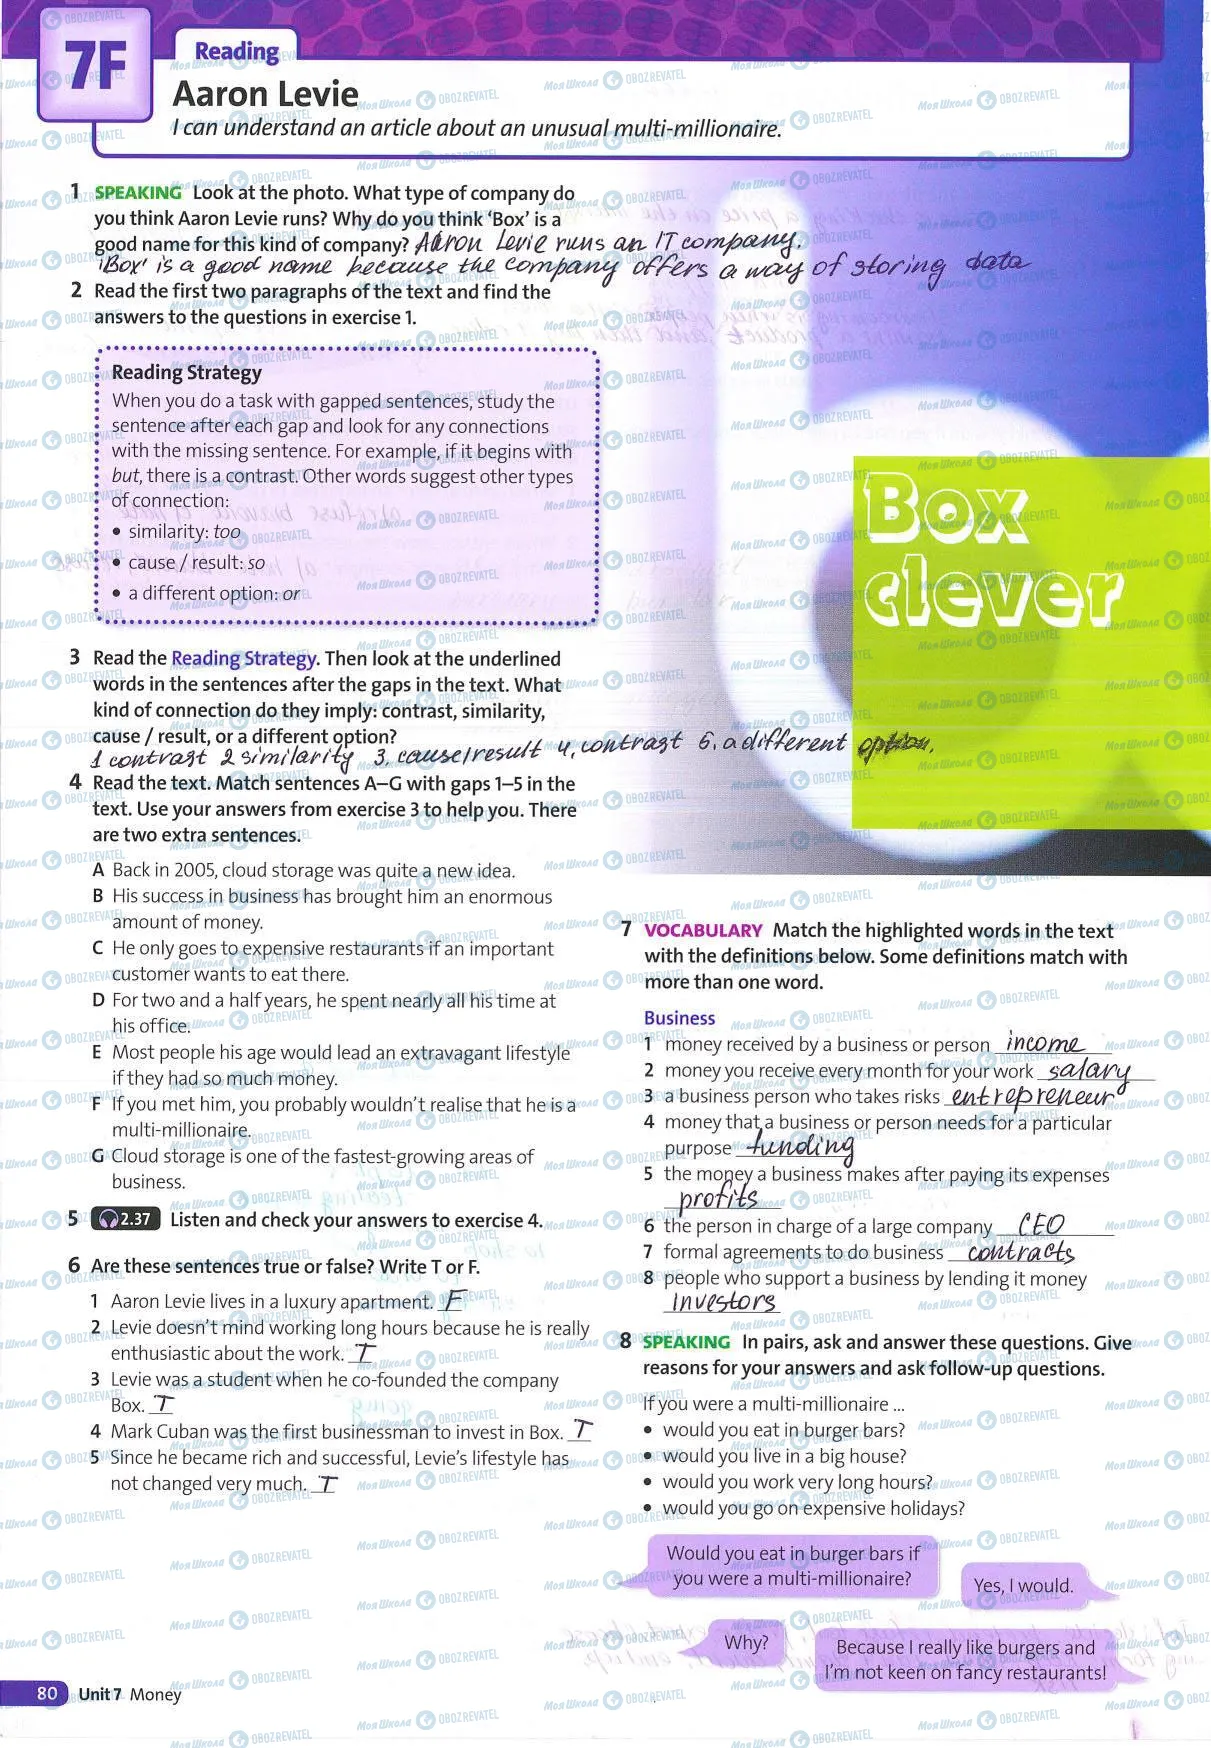 7F
Reading
Aaron Levie
I can understand an article about an unusual multi-millionaire.
1 SPEAKING Look at the photo. What type of company do
you think Aaron Levie runs? Why do you think ‘Box’ is a
good name for this kind of company? Aaron Levie runs an IT company.
'Box' is a good name because the company offers a way of storing data
2 Read the first two paragraphs of the text and find the
answers to the questions in exercise 1.
Reading Strategy
When you do a task with gapped sentences, study the
sentence after each gap and look for any connections
with the missing sentence. For example, if it begins with
but, there is a contrast. Other words suggest other types
of connection:
• similarity: too
• cause / result: so
• a different option: or
3 Read the Reading Strategy. Then look at the underlined
words in the sentences after the gaps in the text. What
kind of connection do they imply: contrast, similarity,
cause / result, or a different option?
1 contrast 2 similarity 3. cause/result 4. contrast 6. a different option.
4 Read the text. Match sentences A–G with gaps 1–5 in the
text. Use your answers from exercise 3 to help you. There
are two extra sentences.
A Back in 2005, cloud storage was quite a new idea.
B His success in business has brought him an enormous
amount of money.
C He only goes to expensive restaurants if an important
customer wants to eat there.
D For two and a half years, he spent nearly all his time at
his office.
E Most people his age would lead an extravagant lifestyle
if they had so much money.
F If you met him, you probably wouldn’t realise that he is a
multi-millionaire.
G Cloud storage is one of the fastest-growing areas of
business.
5 2.37 Listen and check your answers to exercise 4.
6 Are these sentences true or false? Write T or F.
1 Aaron Levie lives in a luxury apartment. F
2 Levie doesn’t mind working long hours because he is really
enthusiastic about the work. T
3 Levie was a student when he co-founded the company
Box. T
4 Mark Cuban was the first businessman to invest in Box. T
5 Since he became rich and successful, Levie’s lifestyle has
not changed very much. T
Box
clever
7 VOCABULARY Match the highlighted words in the text
with the definitions below. Some definitions match with
more than one word.
Business
1 money received by a business or person income
2 money you receive every month for your work salary
3 a business person who takes risks entrepreneur
4 money that a business or person needs for a particular
purpose funding
5 the money a business makes after paying its expenses
profits
6 the person in charge of a large company CEO
7 formal agreements to do business contracts
8 people who support a business by lending it money
investors
8 SPEAKING In pairs, ask and answer these questions. Give
reasons for your answers and ask follow-up questions.
If you were a multi-millionaire ...
• would you eat in burger bars?
• would you live in a big house?
• would you work very long hours?
• would you go on expensive holidays?
Would you eat in burger bars if
you were a multi-millionaire?
Yes, I would.
Why?
Because I really like burgers and
I’m not keen on fancy restaurants!
80 Unit 7 Money
Моя Школа OBOZREVATEL